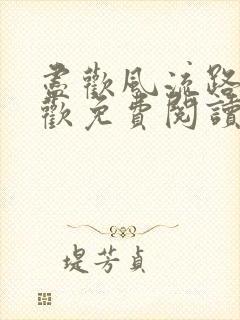 盡歡風流路
歡免費閱讀
堤芳貞